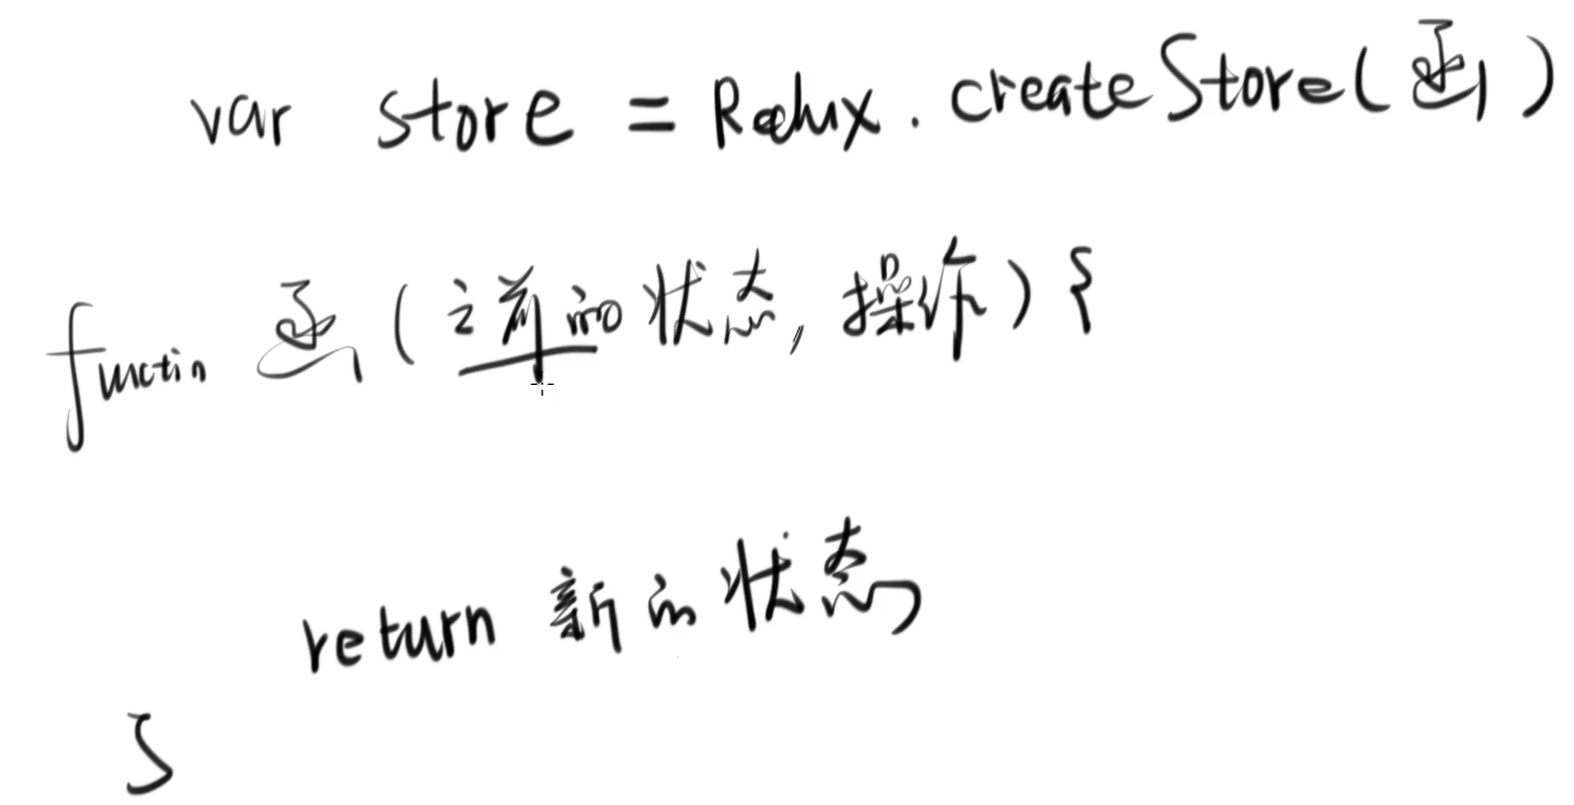 var store = Redux.createStore(函)
functin 函(之前的状态,操作){
return 新的状态
}